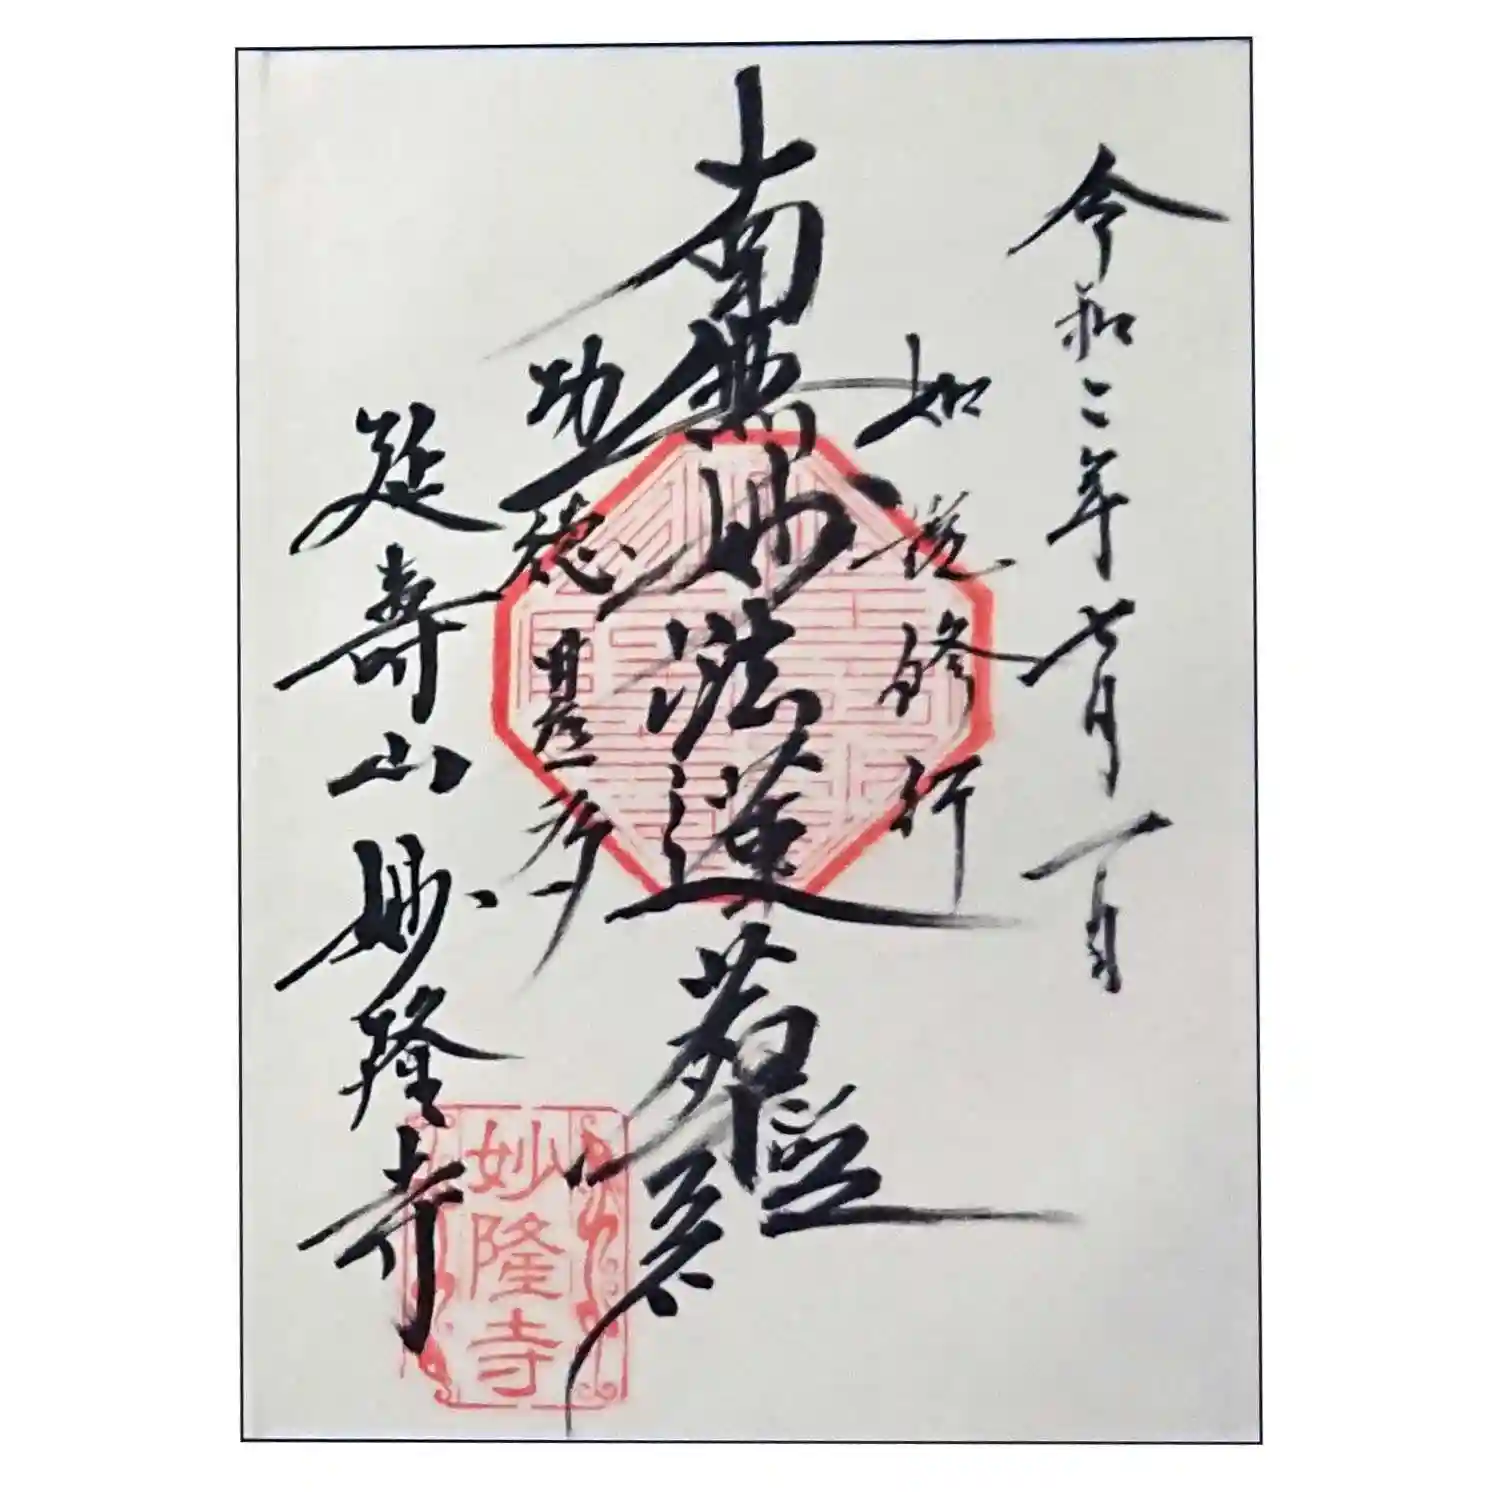 令和二年七月一日
如説修行
南無妙法蓮華經
功徳甚多
延壽山妙隆寺
妙隆寺